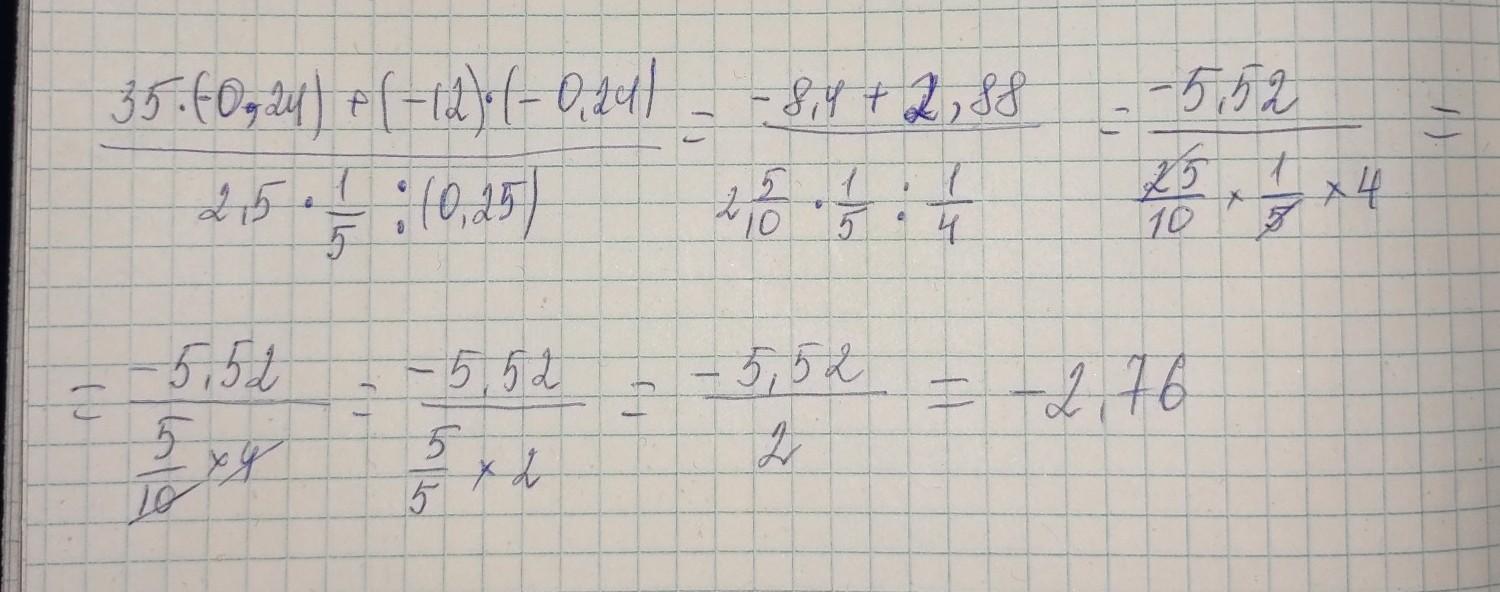 35·(-0,24) + (-12)·(-0,24) / 2,5 · 1/5 : (0,25) = -8,4 + 2,88 / 2 5/10 · 1/5 : 1/4 = -5,52 / 25/10 × 1/5 × 4 =
= -5,52 / 5/10 × 4 = -5,52 / 5/5 × 2 = -5,52 / 2 = -2,76